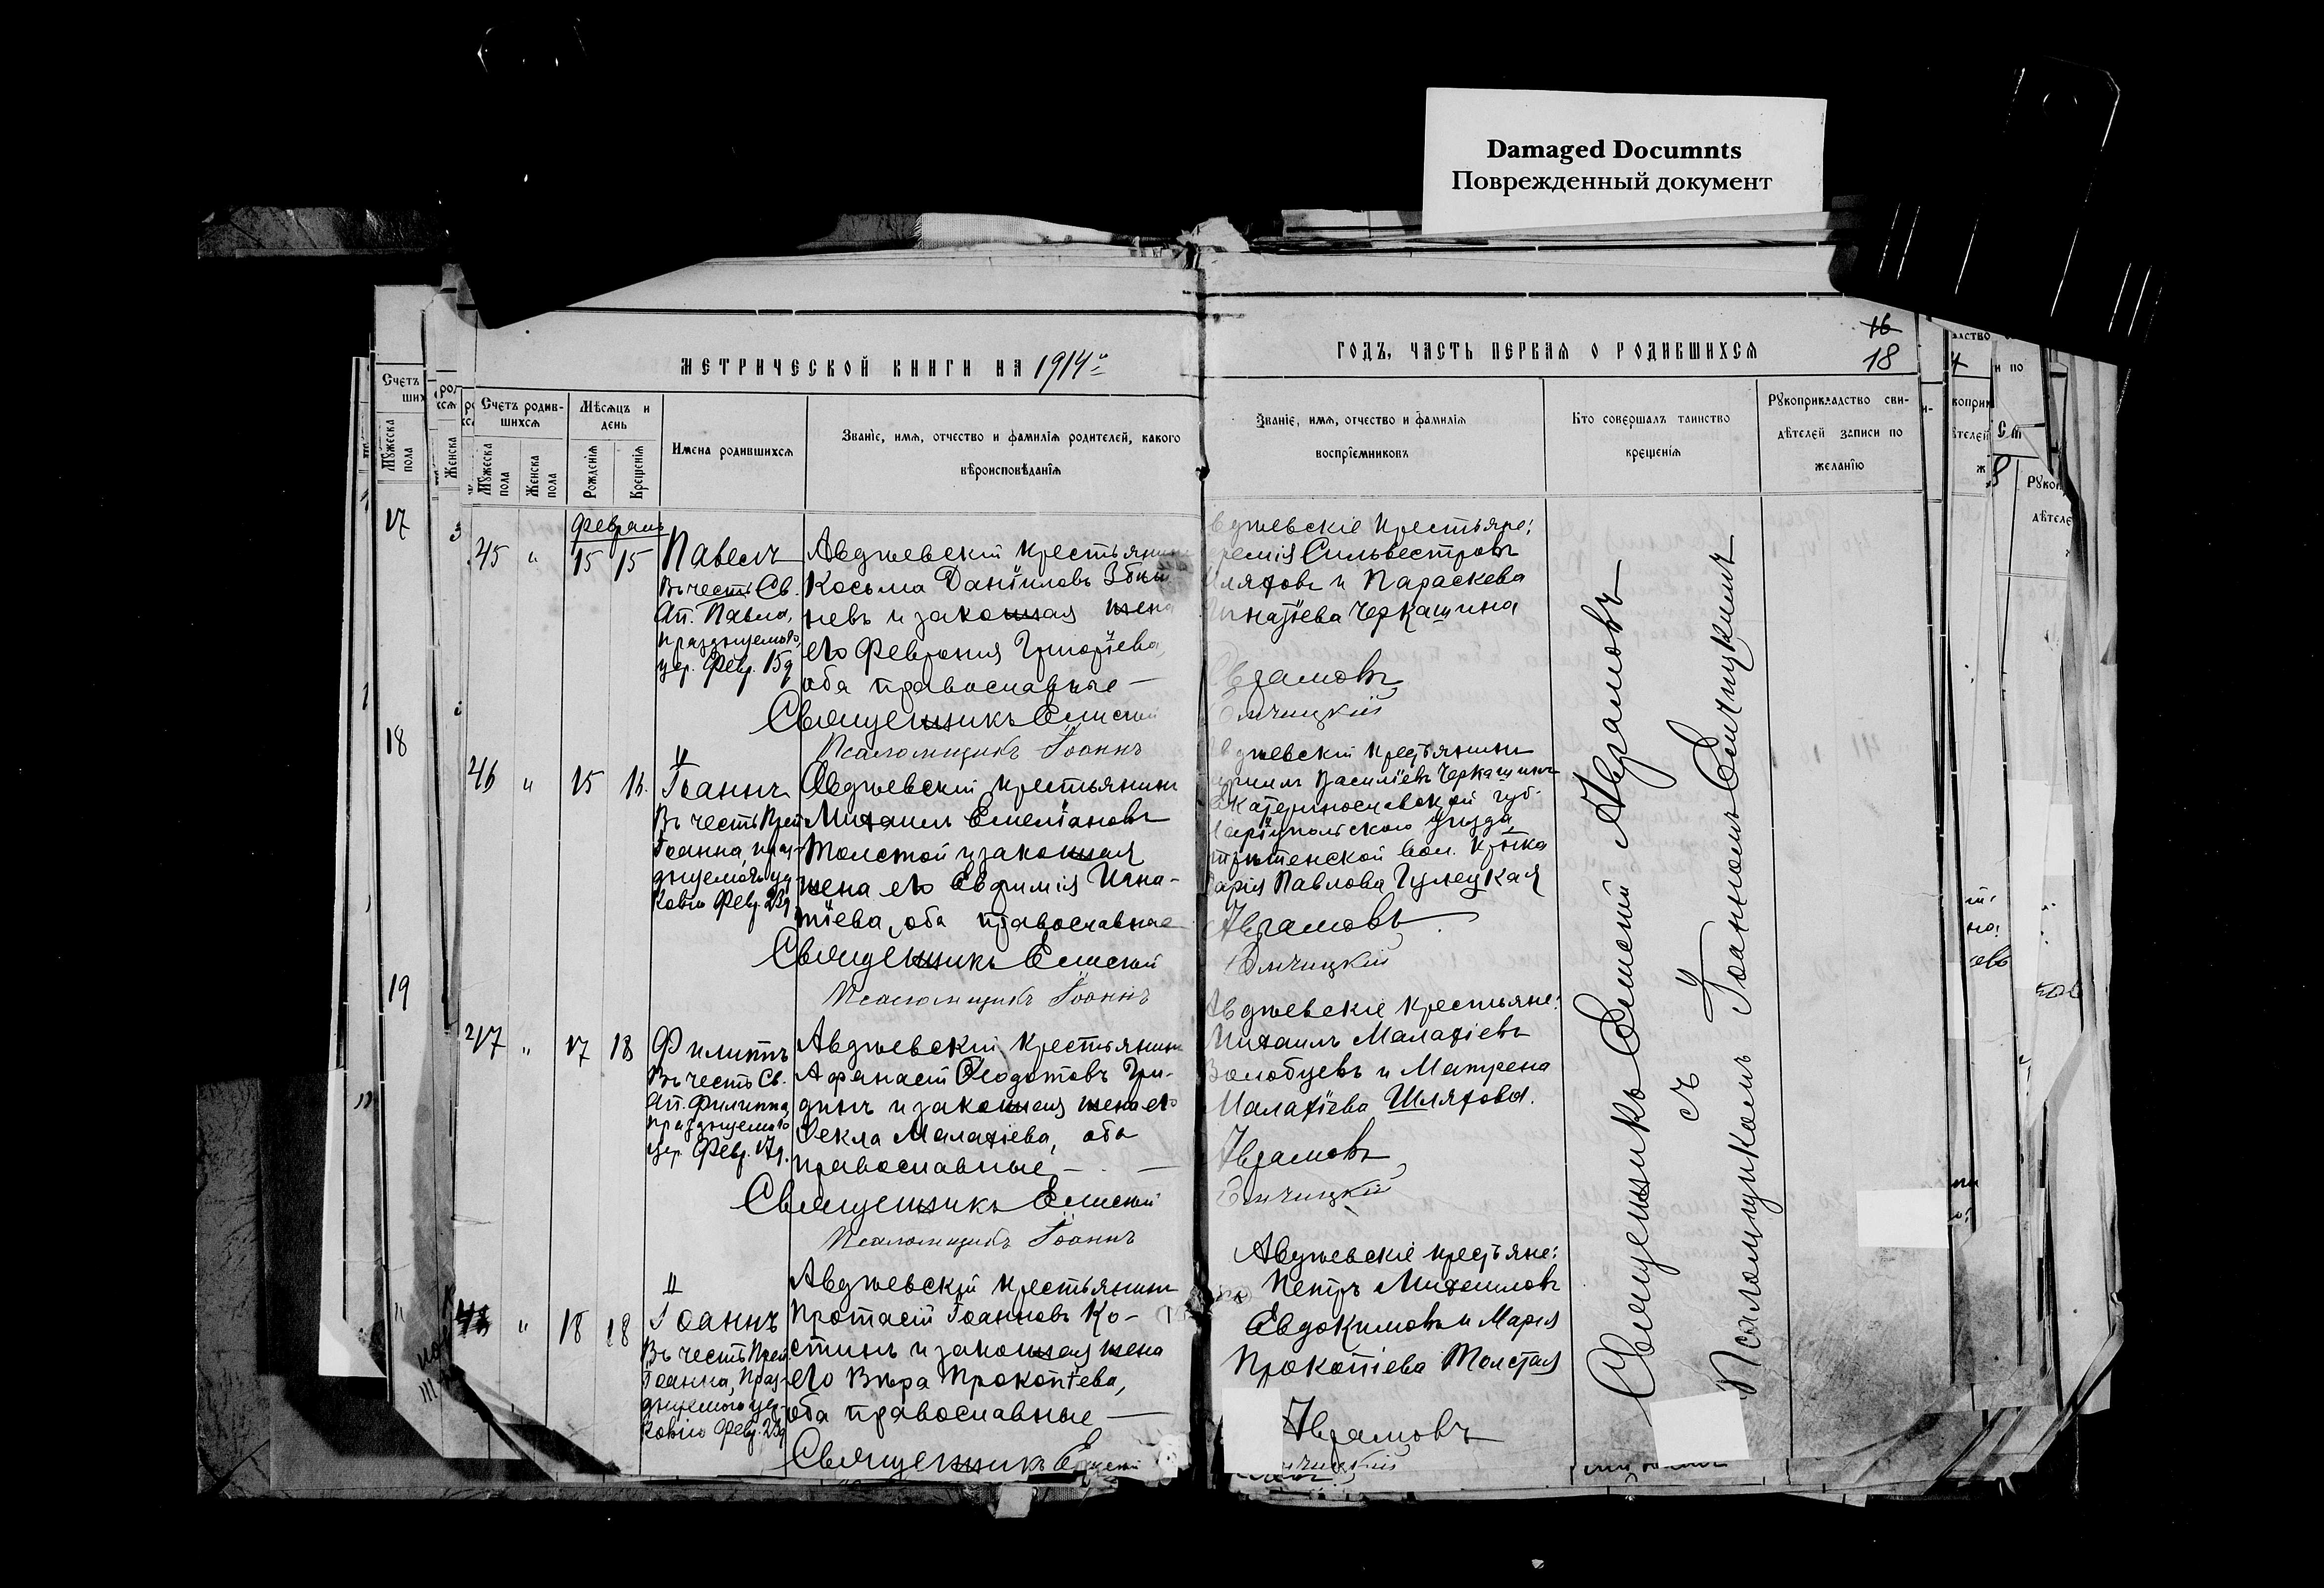 Damaged Documnts
Поврежденный документ
МЕТРИЧЕСКОЙ КНИГИ НА 1914
ГОДЪ, ЧАСТЬ ПЕРВАЯ О РОДИВШИХСЯ
16
18
Счетъ родив-
шихся
Мужеска пола
Женска пола
Мѣсяцъ и
день
Рожденія
Крещенія
Имена родившихся
Званіе, имя, отчество и фамилія родителей, какого
вѣроисповѣданія
Званіе, имя, отчество и фамилія
воспріемниковъ
Кто совершалъ таинство
крещенія
Рукоприкладство сви-
дѣтелей записи по
желанію
Февраль
45 " 15 15
Павелъ
Въ честь Св.
Ап. Павла,
празднуемаго
цер. Февр. 15д
Авдѣевскій крестьянинъ
Косьма Даніиловъ
невъ и законная жена
его Феврония Григоріева,
оба православные —
Священникъ Елисей
Псаломщикъ Іоаннъ
вдѣевскіе крестьяне:
ремія Сильвестровъ
Шляховъ и Параскева
Игнатіева Черкашина
Аврамовъ
Емчицкій
46 " 15 16.
Іоаннъ
Въ честь Преп
Іоанна, праз-
днуемаго цер-
ковію Февр. 23д
Авдѣевскій крестьянинъ
Михаилъ Емеліановъ
Толстой и законная
жена его Евфимія Игна-
тіева, оба православные
Священникъ Елисей
Псаломщикъ Іоаннъ
вдѣевскій крестьянинъ
Василіевъ Черкашинъ
Екатеринославской губ.
Маріупольскаго уѣзда,
вол. кр-ка
Дарія Павлова Гулецкая
Аврамовъ
Емчицкій
47 " 17 18
Филиппъ
Въ честь Св.
Ап. Филиппа,
празднуемаго
цер. Февр. 17д.
Авдѣевскій крестьянинъ
Афанасій Ѳеодотовъ Гри-
динъ и законная жена его
Ѳекла Малахіева, оба
православные —
Священникъ Елисей
Псаломщикъ Іоаннъ
Авдѣевскіе крестьяне:
Михаилъ Малахіевъ
Волобуевъ и Матрена
Малахіева Шляхова.
Аврамовъ
Емчицкій
48 " 18 18
Іоаннъ
Въ честь Преп
Іоанна, праз-
днуемаго цер-
ковію Февр. 23д
Авдѣевскій крестьянинъ
Протасій Іоанновъ Ко-
стинъ и законная жена
его Вѣра Прокопіева,
оба православные —
Священникъ Елисей
Авдѣевскіе крестьяне:
Петръ Михаиловъ
Евдокимовъ и Марія
Прокопіева Толстая
Аврамовъ
мчицкій
Священникъ Елисей Аврамовъ
съ
Псаломщикомъ Іоанномъ Емчицкимъ
17
18
19